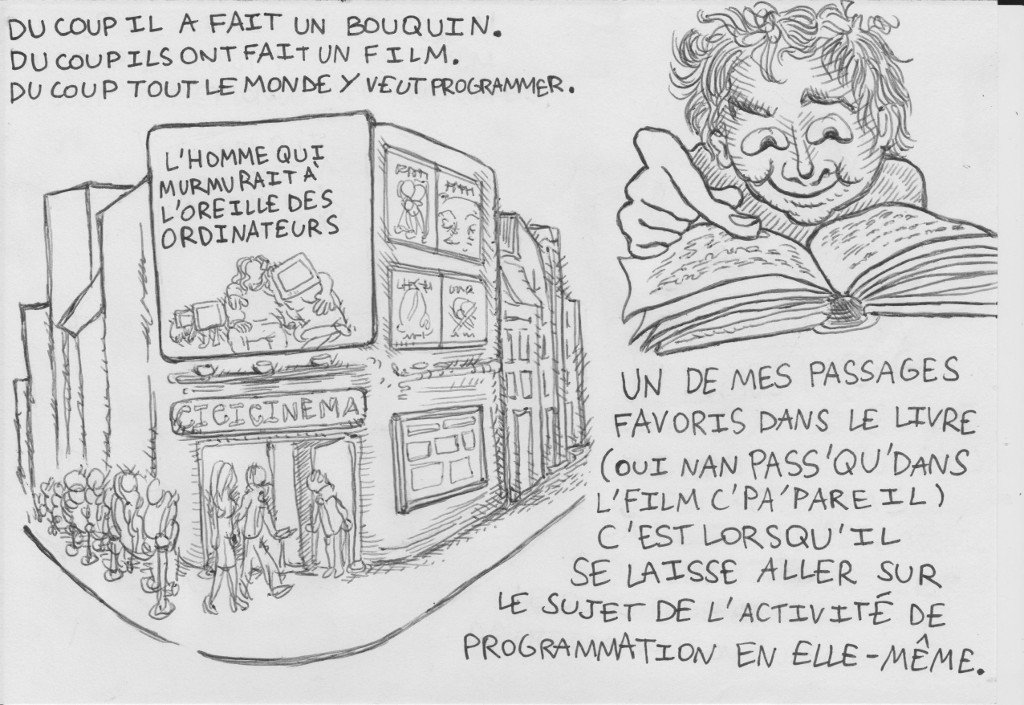 DU COUP IL A FAIT UN BOUQUIN.
DU COUP ILS ONT FAIT UN FILM.
DU COUP TOUT LE MONDE Y VEUT PROGRAMMER.
L'HOMME QUI
MURMURAIT À
L'OREILLE DES
ORDINATEURS
CICICINEMA
UN DE MES PASSAGES
FAVORIS DANS LE LIVRE
(OUI NAN PASS'QU'DANS
L'FILM C'PA'PAREIL)
C'EST LORSQU'IL
SE LAISSE ALLER SUR
LE SUJET DE L'ACTIVITÉ DE
PROGRAMMATION EN ELLE-MÊME.